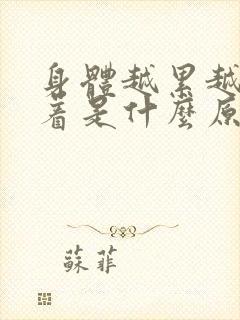 身體越累越
着是什麼原
蘇菲